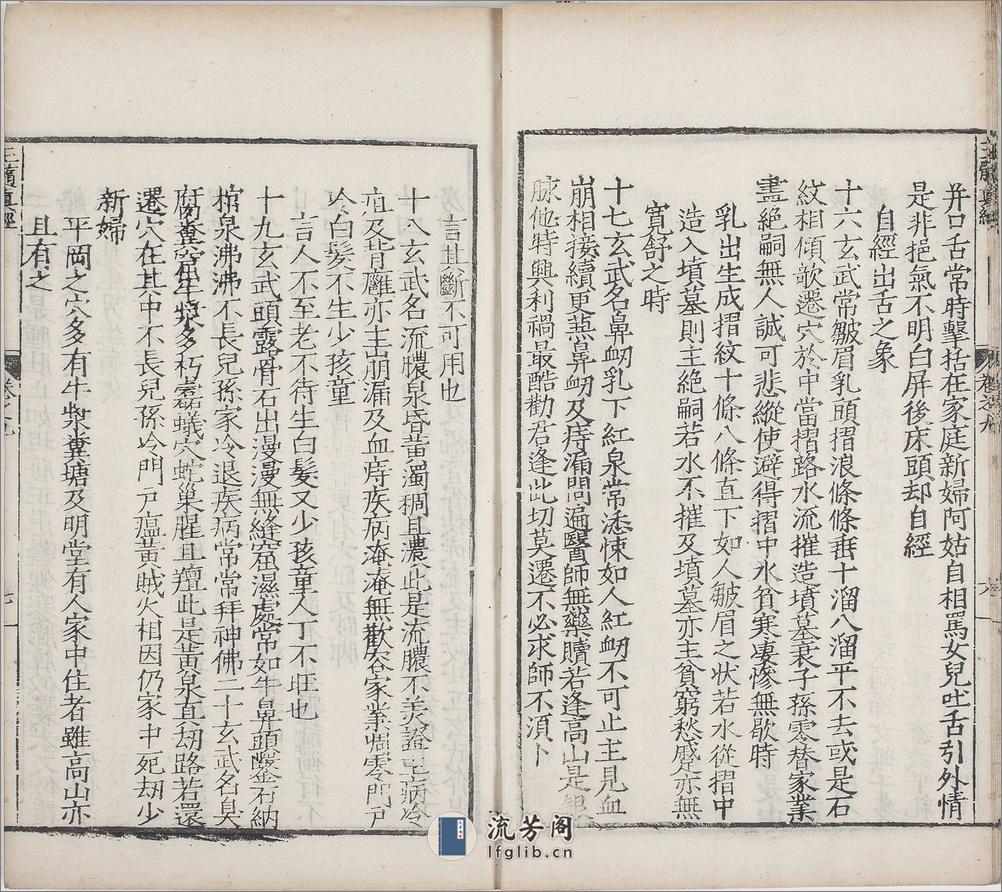 并口舌常時擊括在家庭新婦阿姑自相罵女兒吐舌引外情
是非挹氣不明白屏後床頭却自經
自經出舌之象
十六玄武常皺眉乳頭摺浪條條垂十溜八溜平不去或是石
紋相傾欹遷穴於中當摺路水流摧造墳墓衰子孫零替家業
盡絕嗣無人誠可悲縱使避得摺中水貧寒凄慘無歇時
乳出生成摺紋十條八條直下如人皺眉之狀若水從摺中
造入墳墓則主絕嗣若水不摧及墳墓亦主貧窮愁慼亦無
寬舒之時
十七玄武名鼻衂乳下紅泉常悉悚如人紅衂不可止主見血
崩相接續更蒸鼻衂及痔漏問遍醫師無藥贖若逢高山是
脉他時興利禍最酷勸君逢此切莫遷不必求師不湏卜
言其斷不可用也
十八玄武名流膿泉昏黄濁稠且濃此是流膿不美證主病冷
疸及背癰亦主崩漏及血痔疾病淹淹無歡容家業凋零門戸
吟白髮不生少孩童
言人不至老不待生白髮又少孩童人丁不旺也
十九玄武頭露骨石出漫漫無縫窟濕處常如牛鼻頭嵌石納
棺泉沸沸不長兒孫家冷退疾病常常拜神佛二十玄武名臭
腐糞窖牛㡒多朽蠹蟻穴蛇巢腥且羶此是黄泉真刼路若還
遷穴在其中不長兒孫冷門戸瘟黄賊火相因仍家中死刼少
新婦
平岡之穴多有牛㡒糞塘及明堂有人家中住者雖高山亦
且有之
玉髓真經
卷之九
七
流芳阁
lfglib.cn